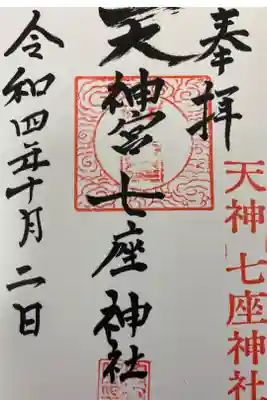 奉拝
天神 七座神社
天神宮 七座神社
令和四年十月二日